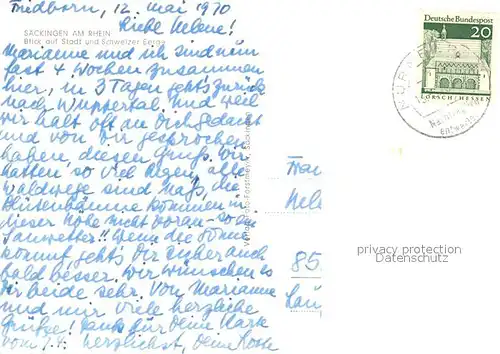 Friedborn, 12. Mai 1970
Liebe Helene!
SÄCKINGEN AM RHEIN
Blick auf Stadt und Schweizer Berge
Marianne und ich sind nun
fast 4 Wochen zusammen
hier, in 3 Tagen geht's zurück
nach Wuppertal. Und weil
wir halt oft an Dich gedacht
und von Dir gesprochen
haben, diesen Gruß. Wir
hatten so viel Regen, alle
Waldwege sind naß, die
Blütenbäume kommen in
dieser Höhe nicht voran - so ein
Sauwetter!! Wenn die Sonne
kommt, geht's Dir sicher auch
bald besser. Wir wünschen es
Dir beide sehr. Von Marianne
und mir viele herzliche
Grüße! Dank für Deine Karte
vom 7.4. herzlichst, Deine
Deutsche Bundespost
20
LORSCH/HESSEN
Frau
Hele
85
privacy protection
Datenschutz